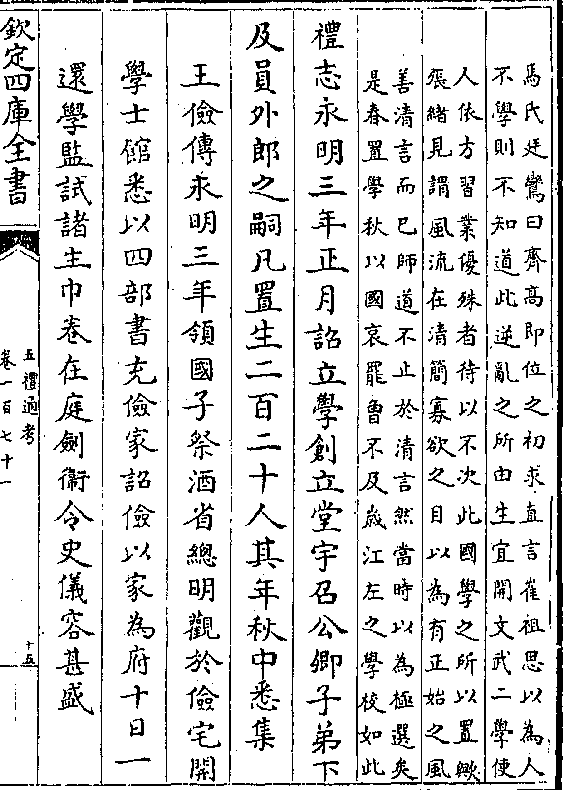 馬氏廷鸞曰齊高即位之初求直言崔祖思以為人
不學則不知道此逆亂之所由生宜開文武二學使
人依方習業優殊者待以不次此國學之所以置歟
張緒見謂風流在清簡寡欲之目以為有正始之風
善清言而已師道不止於清言然當時以為極選矣
是春置學秋以國哀罷曾不及歲江左之學校如此
禮志永明三年正月詔立學創立堂宇召公卿子弟下
及員外郎之嗣凡置生二百二十人其年秋中悉集
王儉傳永明三年領國子祭酒省總明觀於儉宅開
學士館悉以四部書充儉家詔儉以家為府十日一
還學監試諸生巾卷在庭劍衞令史儀容甚盛
欽定四庫全書
五禮通考
卷一百七十一
十五